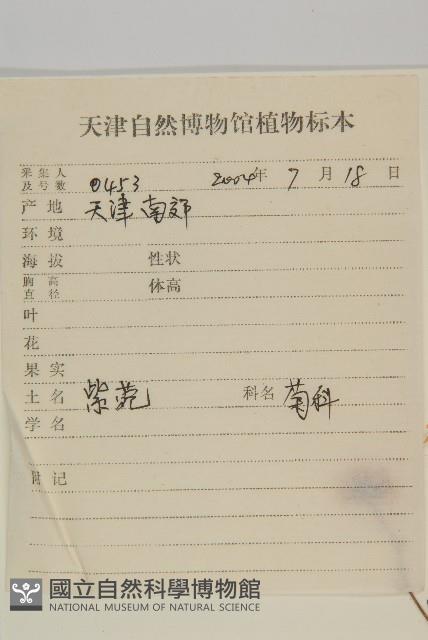 天津自然博物馆植物标本
采集人及号数 0453 2004年 7 月 18 日
产地 天津南郊
环境
海拔 性状
胸高直径 体高
叶
花
果实
土名 紫菀 科名 菊科
学名
附记
國立自然科學博物館
NATIONAL MUSEUM OF NATURAL SCIENCE